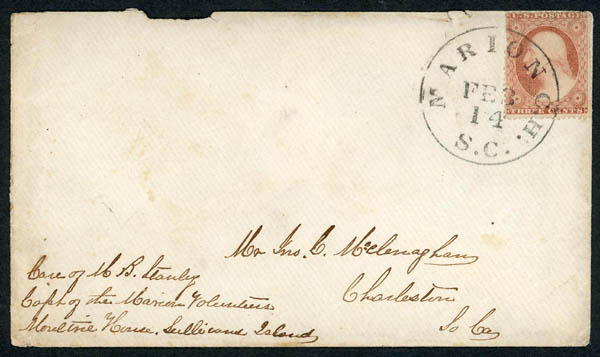 U.S. POSTAGE
THREE CENTS
MARION C.H.
FEB
14
S.C.
Mr Jno. C. McClenaghan
Charleston
So Ca
Care of M B. Stanley
Capt of the Marion Volunteers
Moultrie House, Sullivans Island